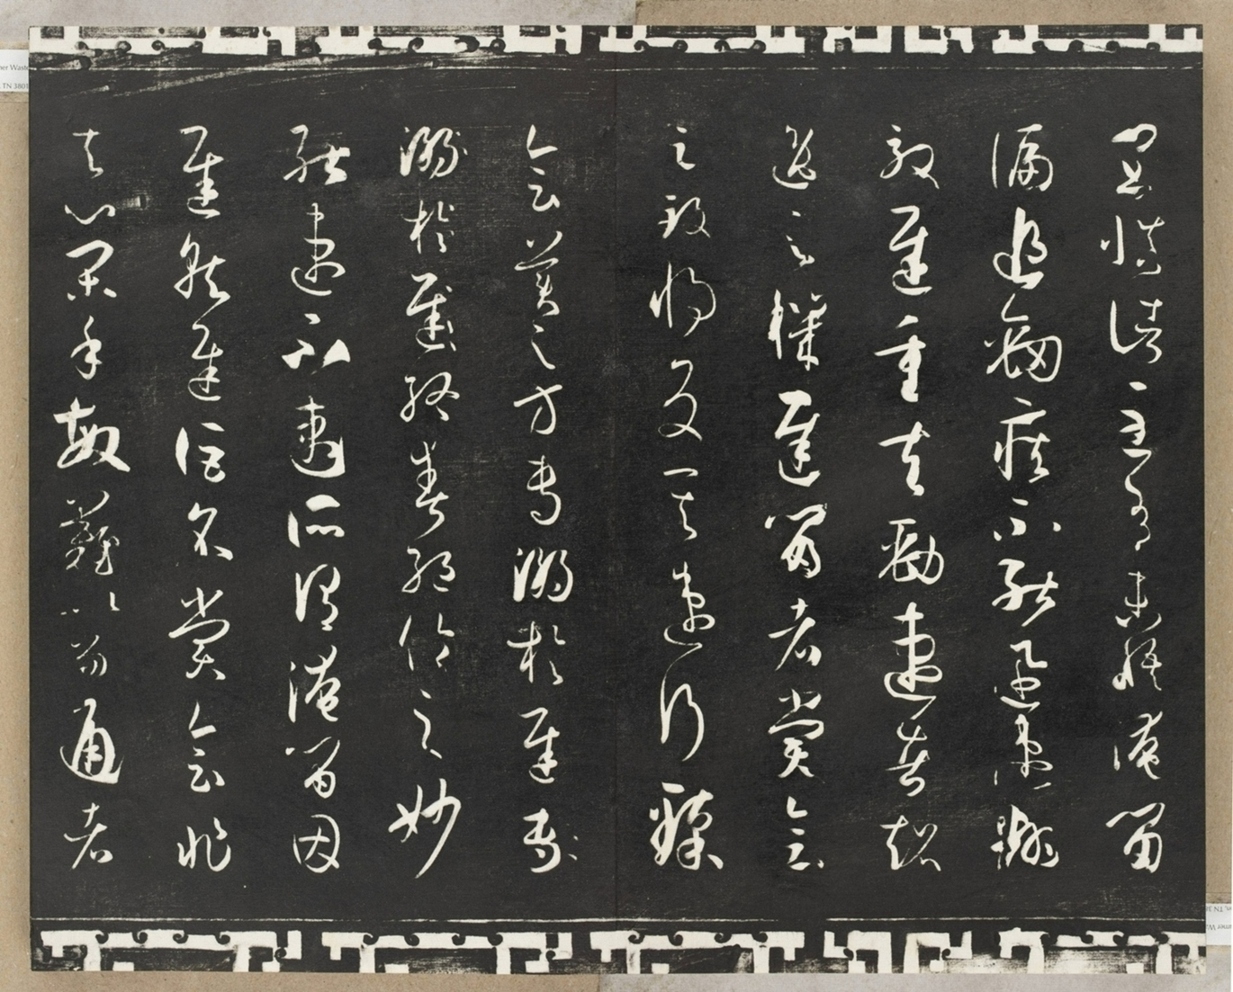 宜慎諸至有未悟淹留
偏追勁疾不能迅速翻
效遲重夫勁速者超
逸之機遲留者賞會
之致將反其速行臻
會美之方專溺於遲專
溺於遲終爽絕倫之妙
能速不速所謂淹留因
遲就遲詎名賞會非
夫心閑手敏難以兼通者